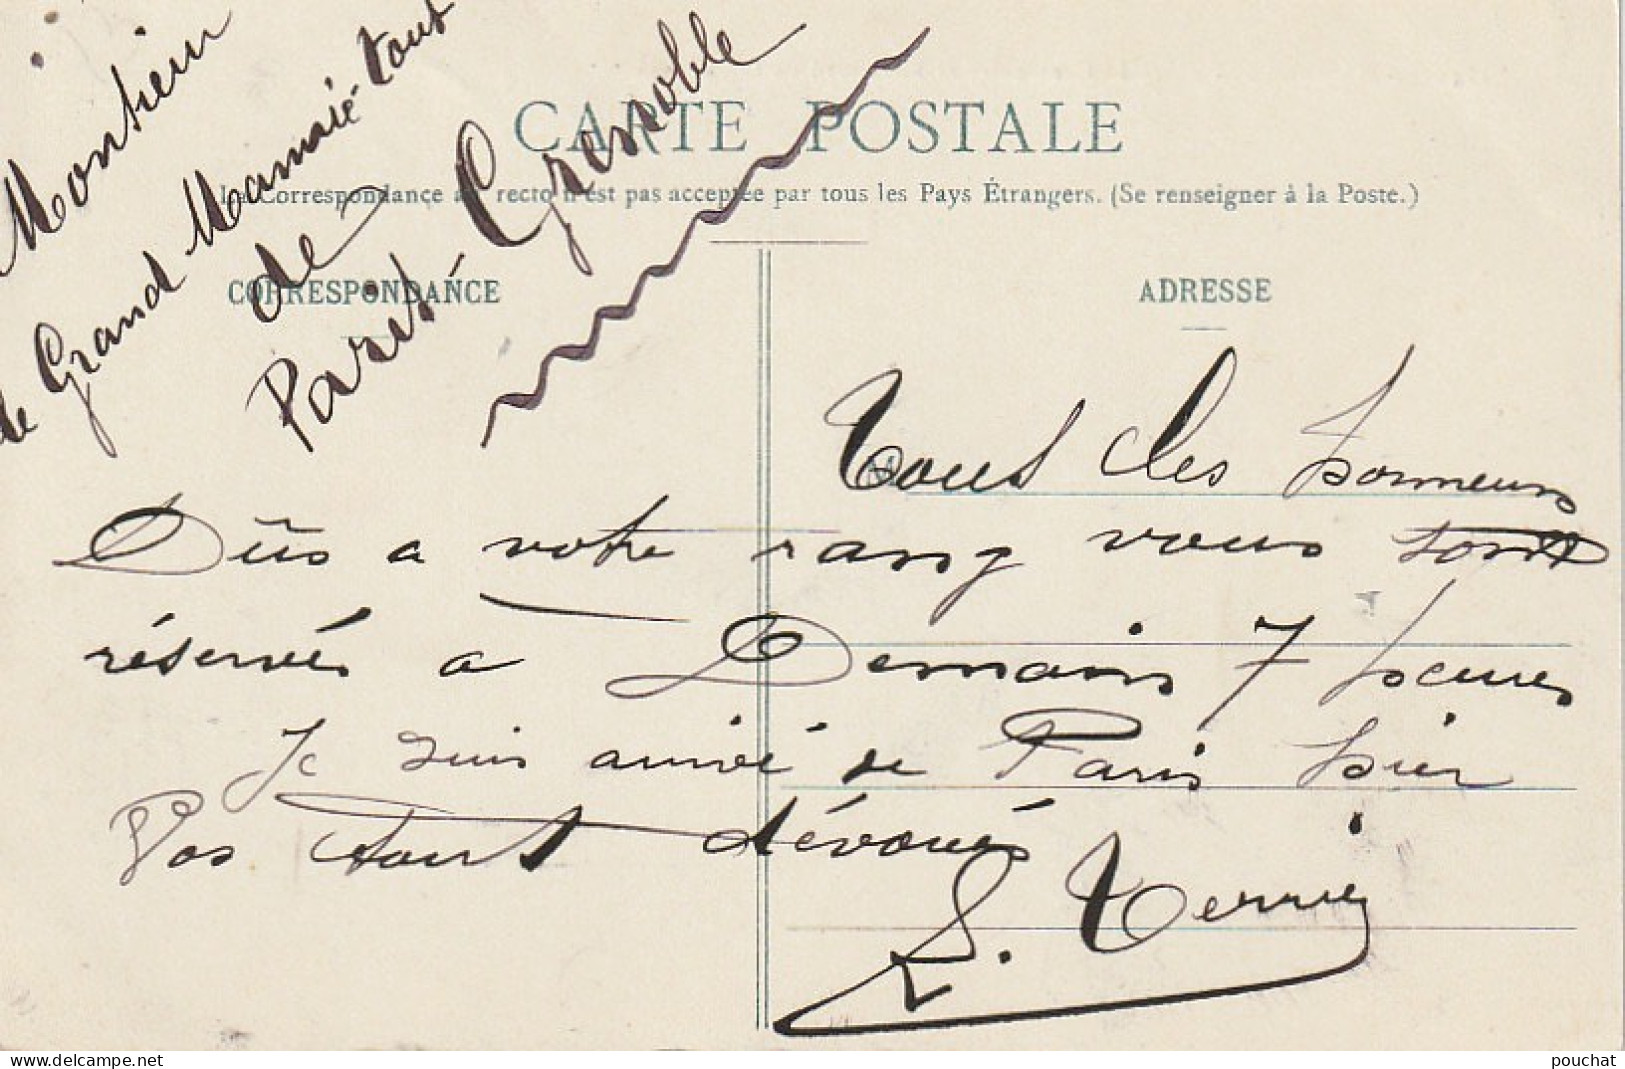 Montieu
de Grand Mamie-tout
de
Paris-Grenoble
CARTE POSTALE
La Correspondance au recto n'est pas acceptée par tous les Pays Étrangers. (Se renseigner à la Poste.)
CORRESPONDANCE
ADRESSE
Tous les honneurs
Dûs a votre rang vous sont
réservés a Demain 7 heures
Je suis arrivé de Paris hier
Vos tout dévoués
L. Terrier
www.delcampe.net
pouchat